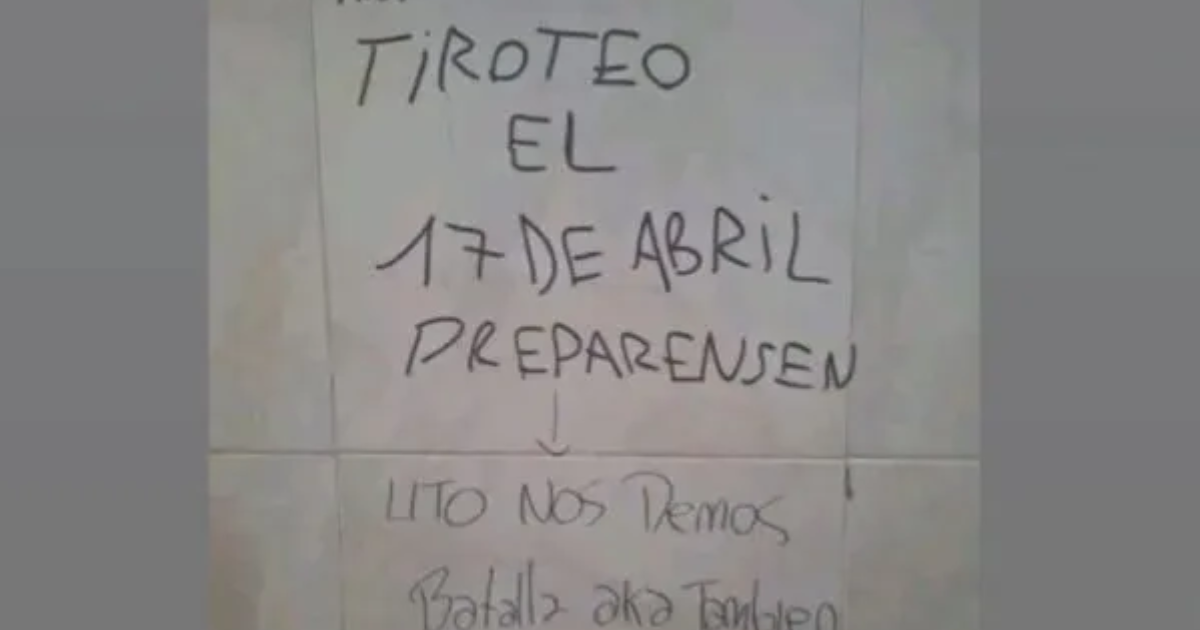 TiROTEO
EL
17 DE ABRiL
PREPARENSEN
LITO NOS Demos
Batalla aka Tambien